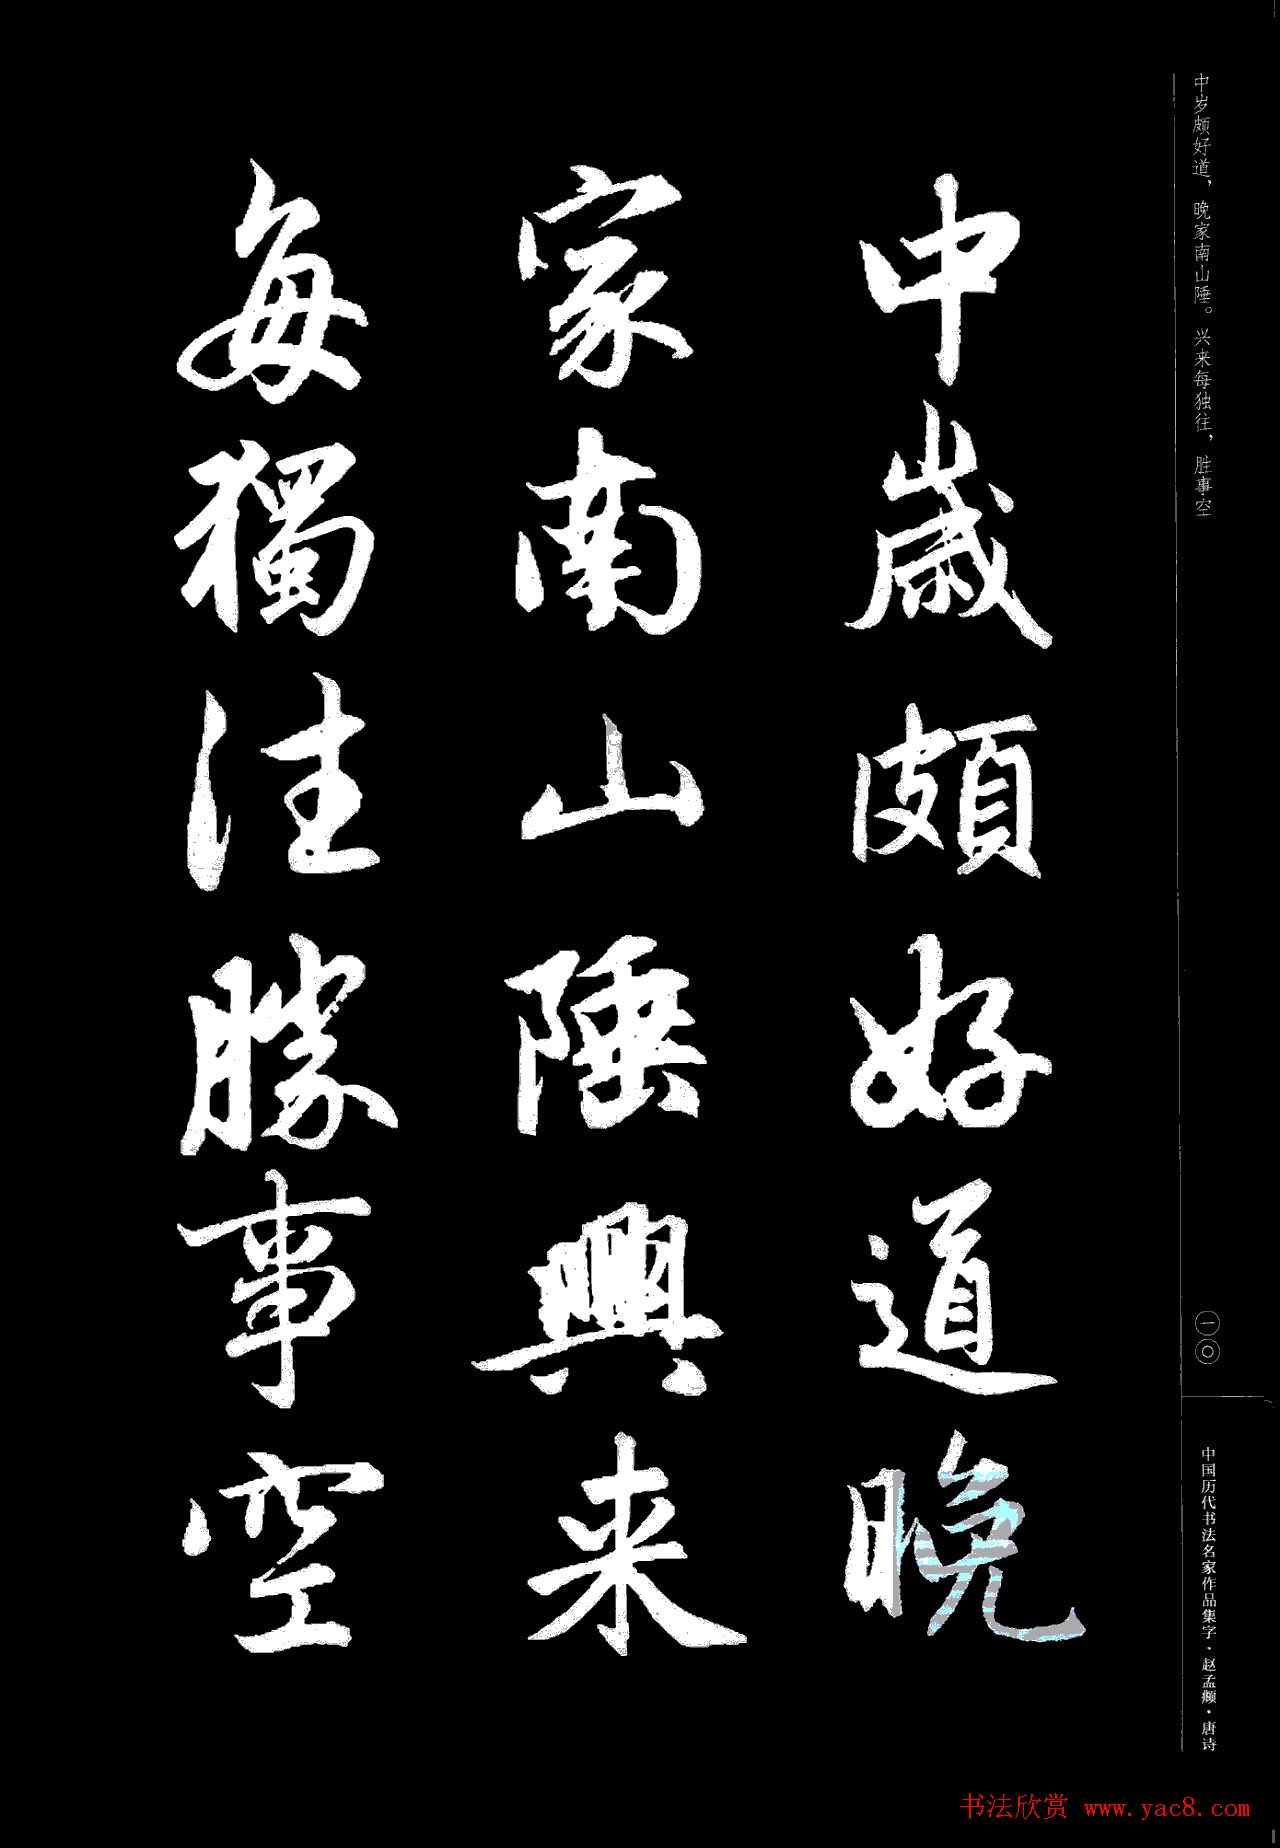 中歲頗好道晚
家南山陲興来
每獨往勝事空
中岁颇好道，晚家南山陲。兴来每独往，胜事空
一〇
中国历代书法名家作品集字·赵孟頫·唐诗
书法欣赏 www.yac8.com